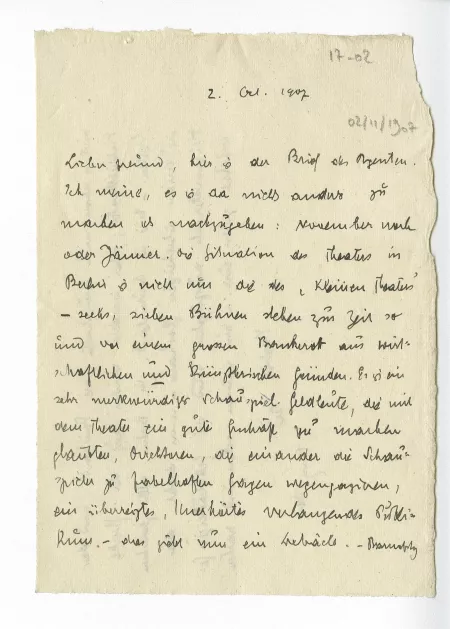 17-02
2. Oct. 1907
02/11/1907
Lieber Freund, hier is der Brief des Agenten.
Ich meine, es is da nichts anders zu
machen als nachzugeben: November noch
oder Jänner. Die Situation des Theaters in
Berlin is nicht nur die des „Kleinen Theaters"
– sechs, sieben Bühnen stehen zur Zeit so
und vor einem grossen Bankerot aus wirt-
schaftlichen und künstlerischen Gründen. Es is ein
sehr merkwürdiges Schauspiel. Geldleute, die mit
dem Theater ein gute Geschäft zu machen
glaubten, Direktoren, die einander die Schau-
spieler zu fabelhaften Gagen wegengagiren,
ein überreiztes, Unerhörtes verlangendes Publi-
kum. – das gibt nun ein Debâcle. –